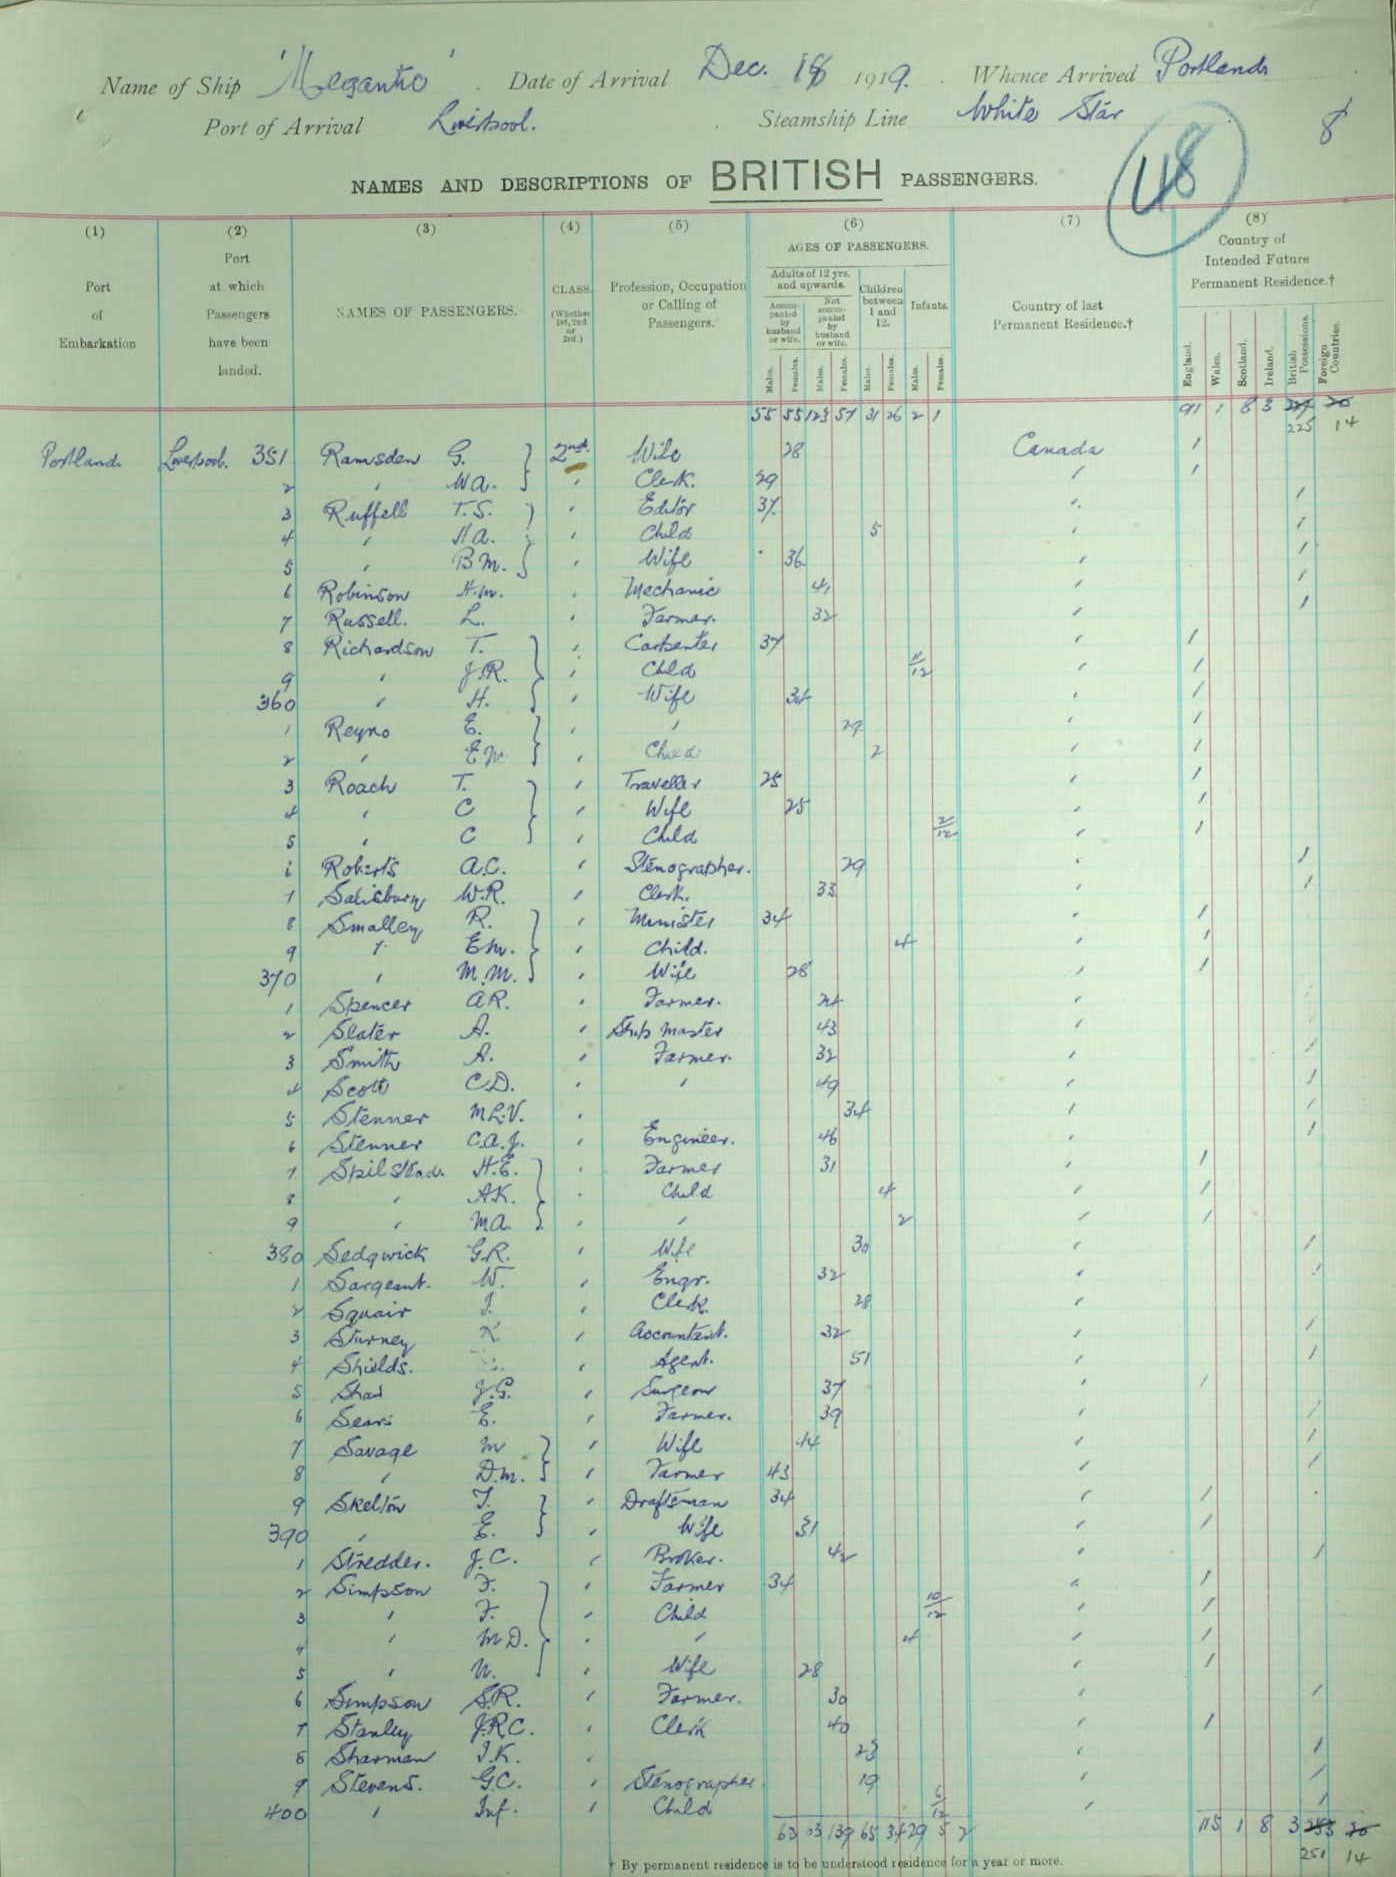 Name of Ship 'Megantic' Date of Arrival Dec. 18 1919. Whence Arrived Portland
Port of Arrival Liverpool. Steamship Line White Star
8
48
NAMES AND DESCRIPTIONS OF BRITISH PASSENGERS.
(1) (2) (3) (4) (5) (6) (7) (8)
Port of Embarkation
Port at which Passengers have been landed.
NAMES OF PASSENGERS.
CLASS. (Whether 1st, 2nd or 3rd.)
Profession, Occupation or Calling of Passengers.
AGES OF PASSENGERS.
Adults of 12 yrs. and upwards.
Accompanied by husband or wife.
Not accompanied by husband or wife.
Children between 1 and 12.
Infants.
Males. Females. Males. Females. Males. Females. Males. Females.
Country of last Permanent Residence.†
Country of Intended Future Permanent Residence.†
England. Wales. Scotland. Ireland. British Possessions. Foreign Countries.
55 55 123 57 31 26 2 1 91 1 8 3
225 14
Portland Liverpool. 351 Ramsden G. 2nd Wife 28 Canada /
2 " W.A. " Clerk. 29 " /
3 Ruffell T.S. " Editor 37 " /
4 " H.A. " Child 5 " /
5 " B.M. " Wife 36 " /
6 Robinson H.M. " Mechanic 41 " /
7 Russell. L. " Farmer. 32 " /
8 Richardson T. " Carpenter 37 " /
9 " J.R. " Child 11/12 " /
360 " H. " Wife 34 " /
1 Reyno E. " " 29 " /
2 " " Child 2 " /
3 Roach T. " Traveller 25 " /
4 " C " Wife 25 " /
5 " C " Child 2/12 " /
6 Roberts A.C. " Stenographer. 29 " /
7 Salisbury W.R. " Clerk. 33 " /
8 Smalley R. " Minister 34 " /
9 " E.M. " Child. 4 " /
370 " M.M. " Wife 28 " /
1 Spencer A.R. " Farmer. " /
2 Slater A. " Ship Master 43 " /
3 Smith A. " Farmer. 32 " /
4 Scott C.D. " " 49 " /
5 Stenner M.L.V. " 34 " /
6 Stenner C.A.J. " Engineer. 46 " /
7 Spilstead. H.E. " Farmer 31 " /
8 " A.K. " Child 4 " /
9 " M.A. " " 2 " /
380 Sedgwick G.R. " Wife 30 " /
1 Sargeant. W. " Engr. 32 " /
2 Squair J. " Clerk 28 "
3 Sturney " Accountant. 32 " /
4 Shields. " Agent. 51 " /
5 Shaw J.G. " Surgeon 37 " /
6 Sears E. " Farmer. 39 " /
7 Savage M " Wife 44 " /
8 " D.M. " Farmer 43 " /
9 Skelton J. " Draftsman 34 " /
390 " E. " Wife 31 " /
1 Stredder. J.C. " Broker. 42 " /
2 Simpson F. " Farmer 34 " /
3 " F. " Child 10/12 " /
4 " M.D. " " 4 " /
5 " N. " Wife 28 " /
6 Simpson S.R. " Farmer. 30 " /
7 Stanley J.R.C. " Clerk 40 " /
8 Sharman I.K. " 23 " /
9 Stevens. G.C. " Stenographer 19 " /
400 " Inf. " Child 6/12 " /
63 63 139 65 34 29 5 2 115 1 8 3
251 14
† By permanent residence is to be understood residence for a year or more.